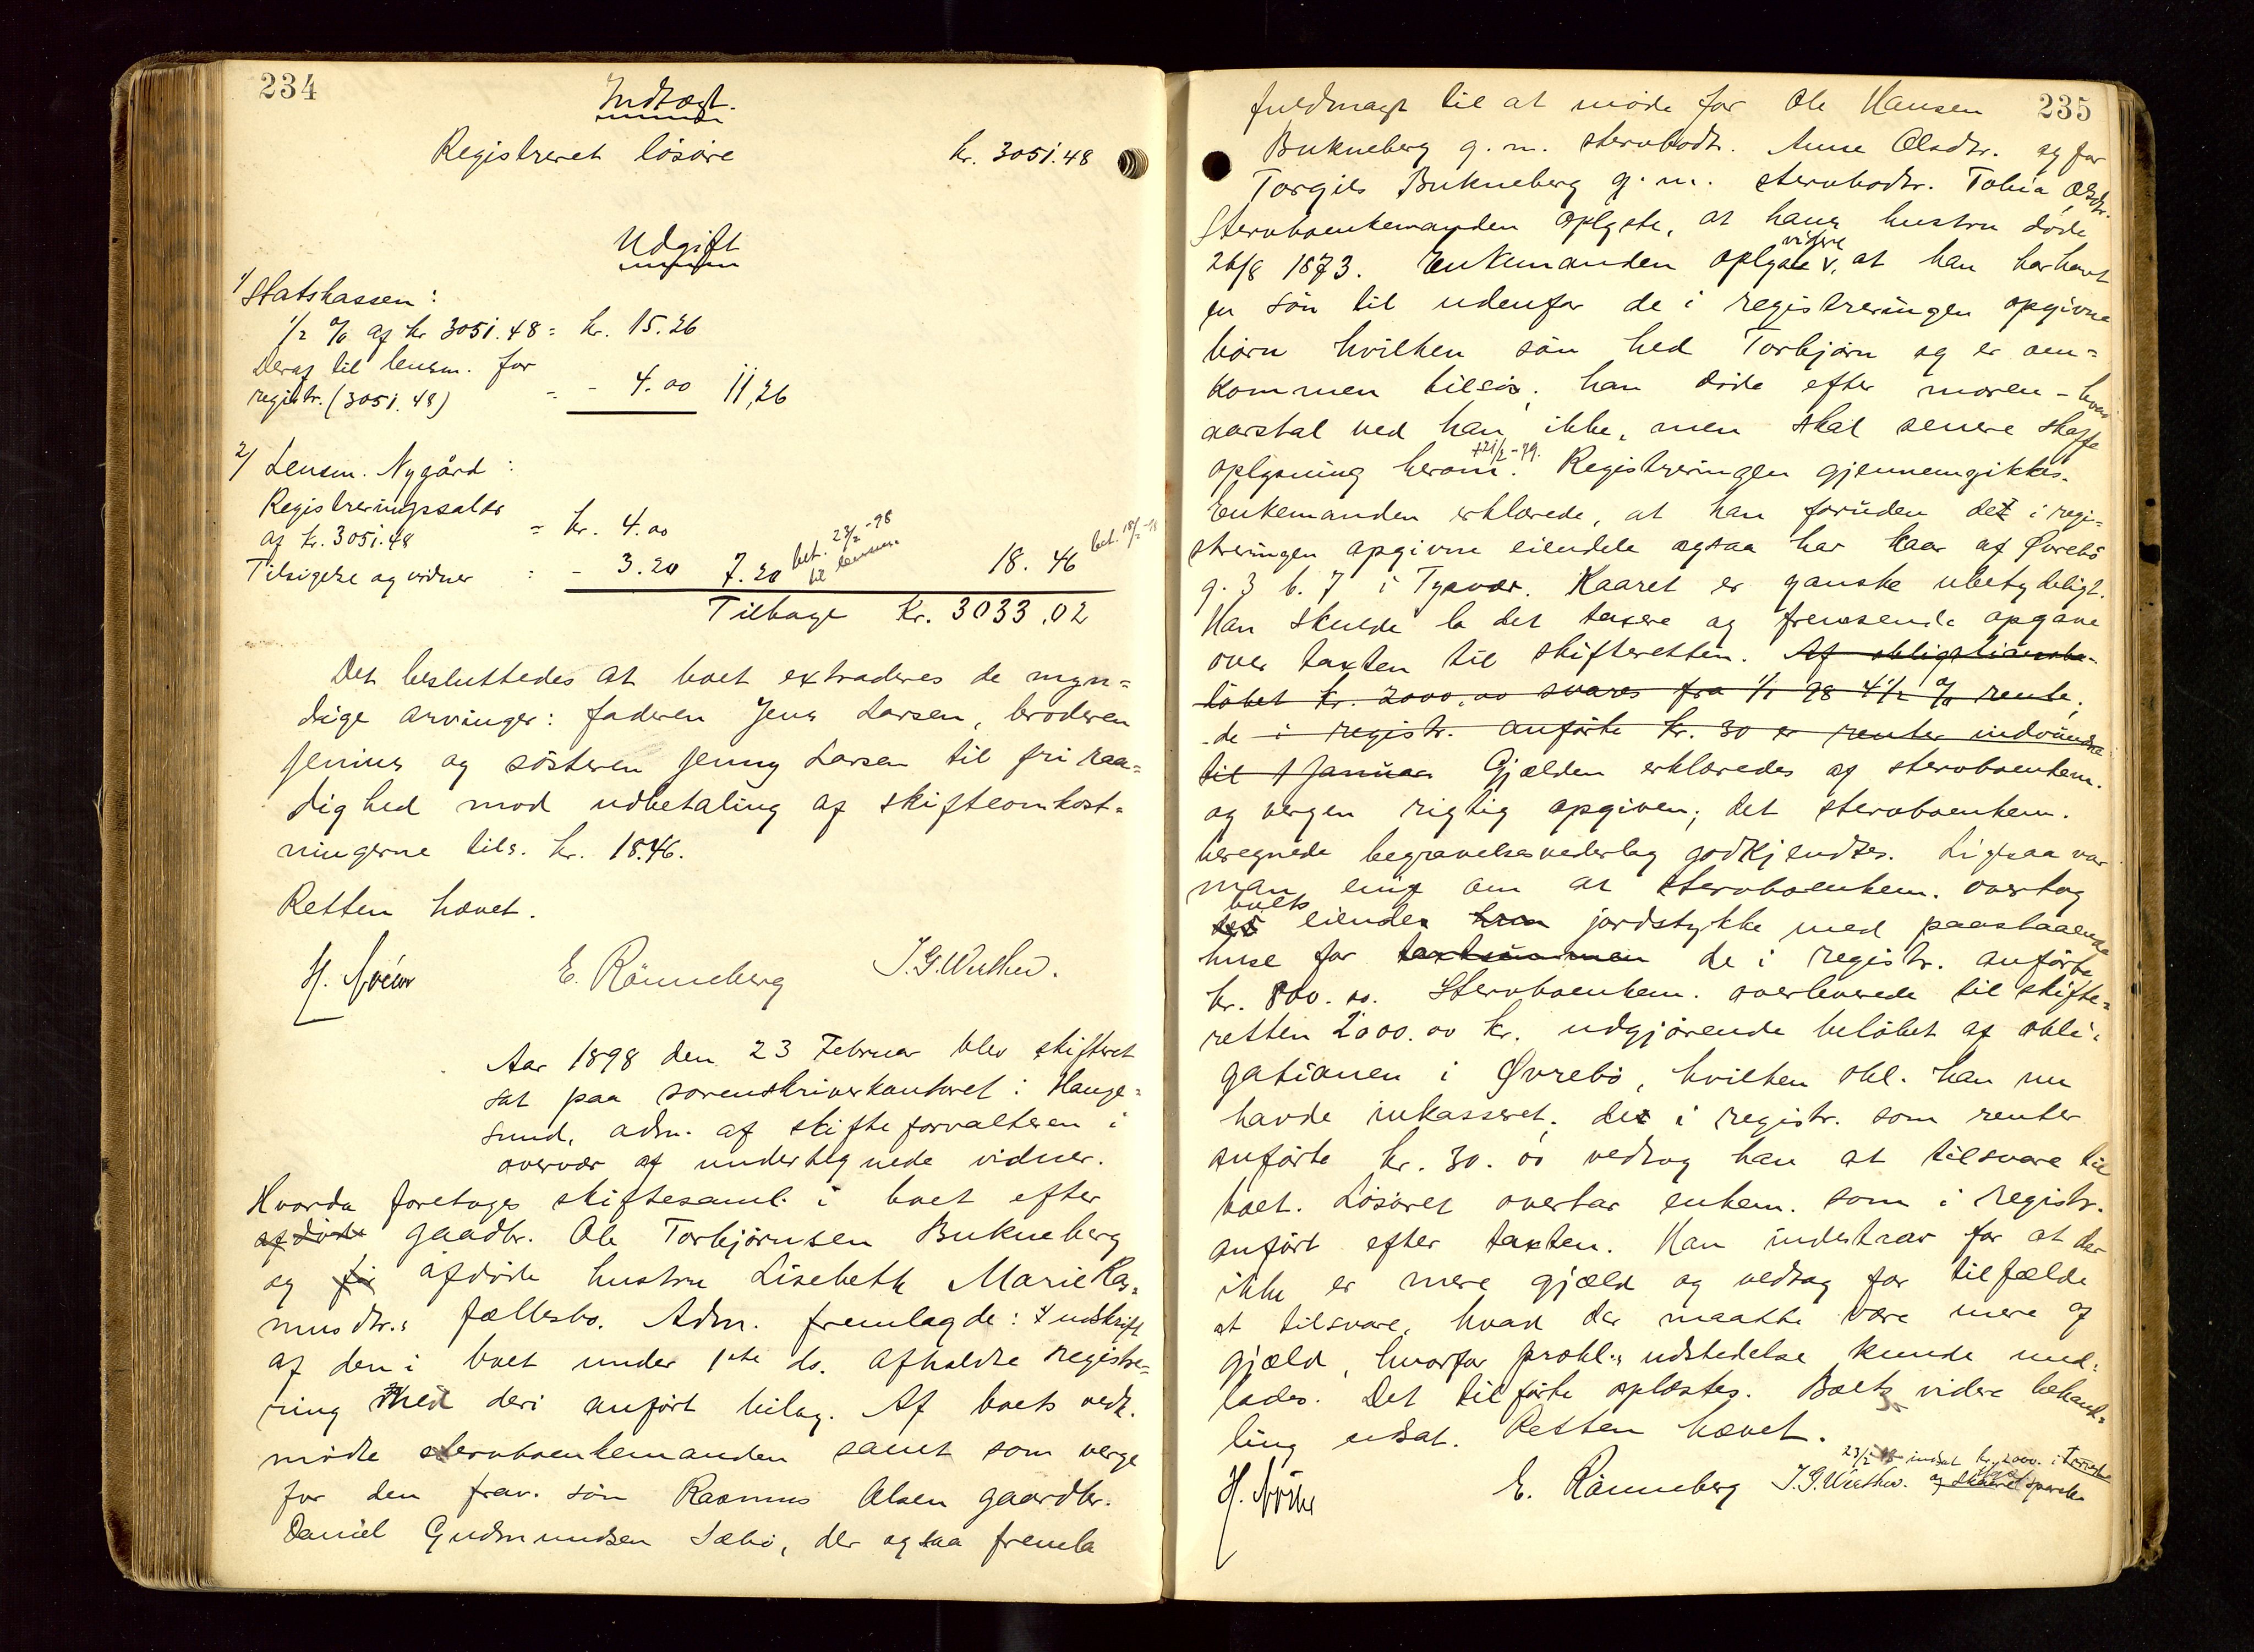 234
Indtægt.
Registreret løsøre kr. 3051.48
Udgift
1/ Statskassen:
1/2 % af kr 3051.48 = kr. 15.26
Deraf til lensm. for
registr. (3051.48) = - 4.00 11,26
2/ Lensm. Nygård:
Registreringssalær
af kr. 3051.48 = kr. 4.00
Tilsigelse og vidner = - 3.20 7.20 bet. 23/2-98 til lensm. 18.46 bet. 18/2-98
Tilbage Kr. 3033.02
Det besluttedes at boet extraderes de myn=
dige arvinger: faderen Jens Larsen, broderen
Jenius og søsteren Jenny Larsen til fri raa=
dighed mod udbetaling af skifteomkost=
ningerne tils. kr. 18.46.
Retten hævet.
E. Rønneberg J.G.Wuthev.
Aar 1898 den 23 Februar blev skifteret
sat paa sorenskriverkontoret i Hauge=
sund, adm. af skifteforvalteren i
overvær af undertegnede vidner.
Hvorda foretoges skiftesaml. i boet efter
afdøde gaadbr. Ole Torbjørnsen Bukneberg
og afdøde hustru Lisebeth Marie Ras=
musdtr.s fællesbo. Adm. fremlagde: Indskrift
af den i boet under 1ste ds. afholdte registre=
ring med deri anført bilag. Af boets vedk.
mødte stervboenkemanden samt som verge
for den frav. søn Rasmus Olsen gaardbr.
Daniel Gudmundsen Sæbø, der ogsaa fremla
235
fuldmagt til at møde for Ole Hansen
Bukneberg g.m. stervbodtr. Anne Olsdtr. og for
Torgils Bukneberg g.m. stervbodtr. Tobia Olsdtr.
Stervboenkemanden oplyste, at hans hustru døde
26/8 1873. Enkemanden oplyste videre, at han har havt
en søn til udenfor de i registreringen opgivne
børn hvilken søn hed Torbjørn og er om=
kommen tilsjøs; han døde efter moren - hvad
aarstal ved han ikke, men skal senere skaffe
oplysning herom. +21/2-79. Registreringen gjennemgikkes.
Enkemanden erklærede, at han foruden det i regi=
streringen opgivne eiendele ogsaa har kaar af Øvrebø
g. 3 b. 7 i Tysvær. Kaaret er ganske ubetydeligt.
Han skulde la det taxere og fremsende opgave
over taxten til skifteretten. Af obligationsbe-
løbet kr. 2000,00 svares fra 1/1 98 4 1/2 % rente;
de i registr. anførte kr. 30 er renter indvundne
til 1 Januar Gjælden erklæredes af stervboenkem.
og vergen rigtig opgiven; det stervboenkem.
beregnede begravelsesvederlag godkjendtes. Ligesaa var
man enig om at stervboenkem. overtog
boets eiendes jordstykke med paastaaende
huse for taxtsummen de i registr. anførte
kr. 800.00. Stervboenkem. overleverede til skifte=
retten 2000.00 kr. udgjørende beløbet af obli=
gationen i Øvrebø, hvilken obl. han nu
havde inkasseret; det i registr. som renter
anførte kr. 30.00 vedtog han at tilsvare til
boet. Løsøret overtar enkem. som i registr.
anført efter taxten. Han indestaar for at der
ikke er mere gjæld og vedtog for tilfælde
at tilsvare, hvad der maatte være mere af
gjæld, hvorfor prokl.s udstedelse kunde und=
lades. Det tilførte oplæstes. Boets videre behand=
ling udsat. Retten hævet.
23/2 98 indsat kr. 2000. i
E. Rønneberg J.G.Wuthev. og Skaare spareb.